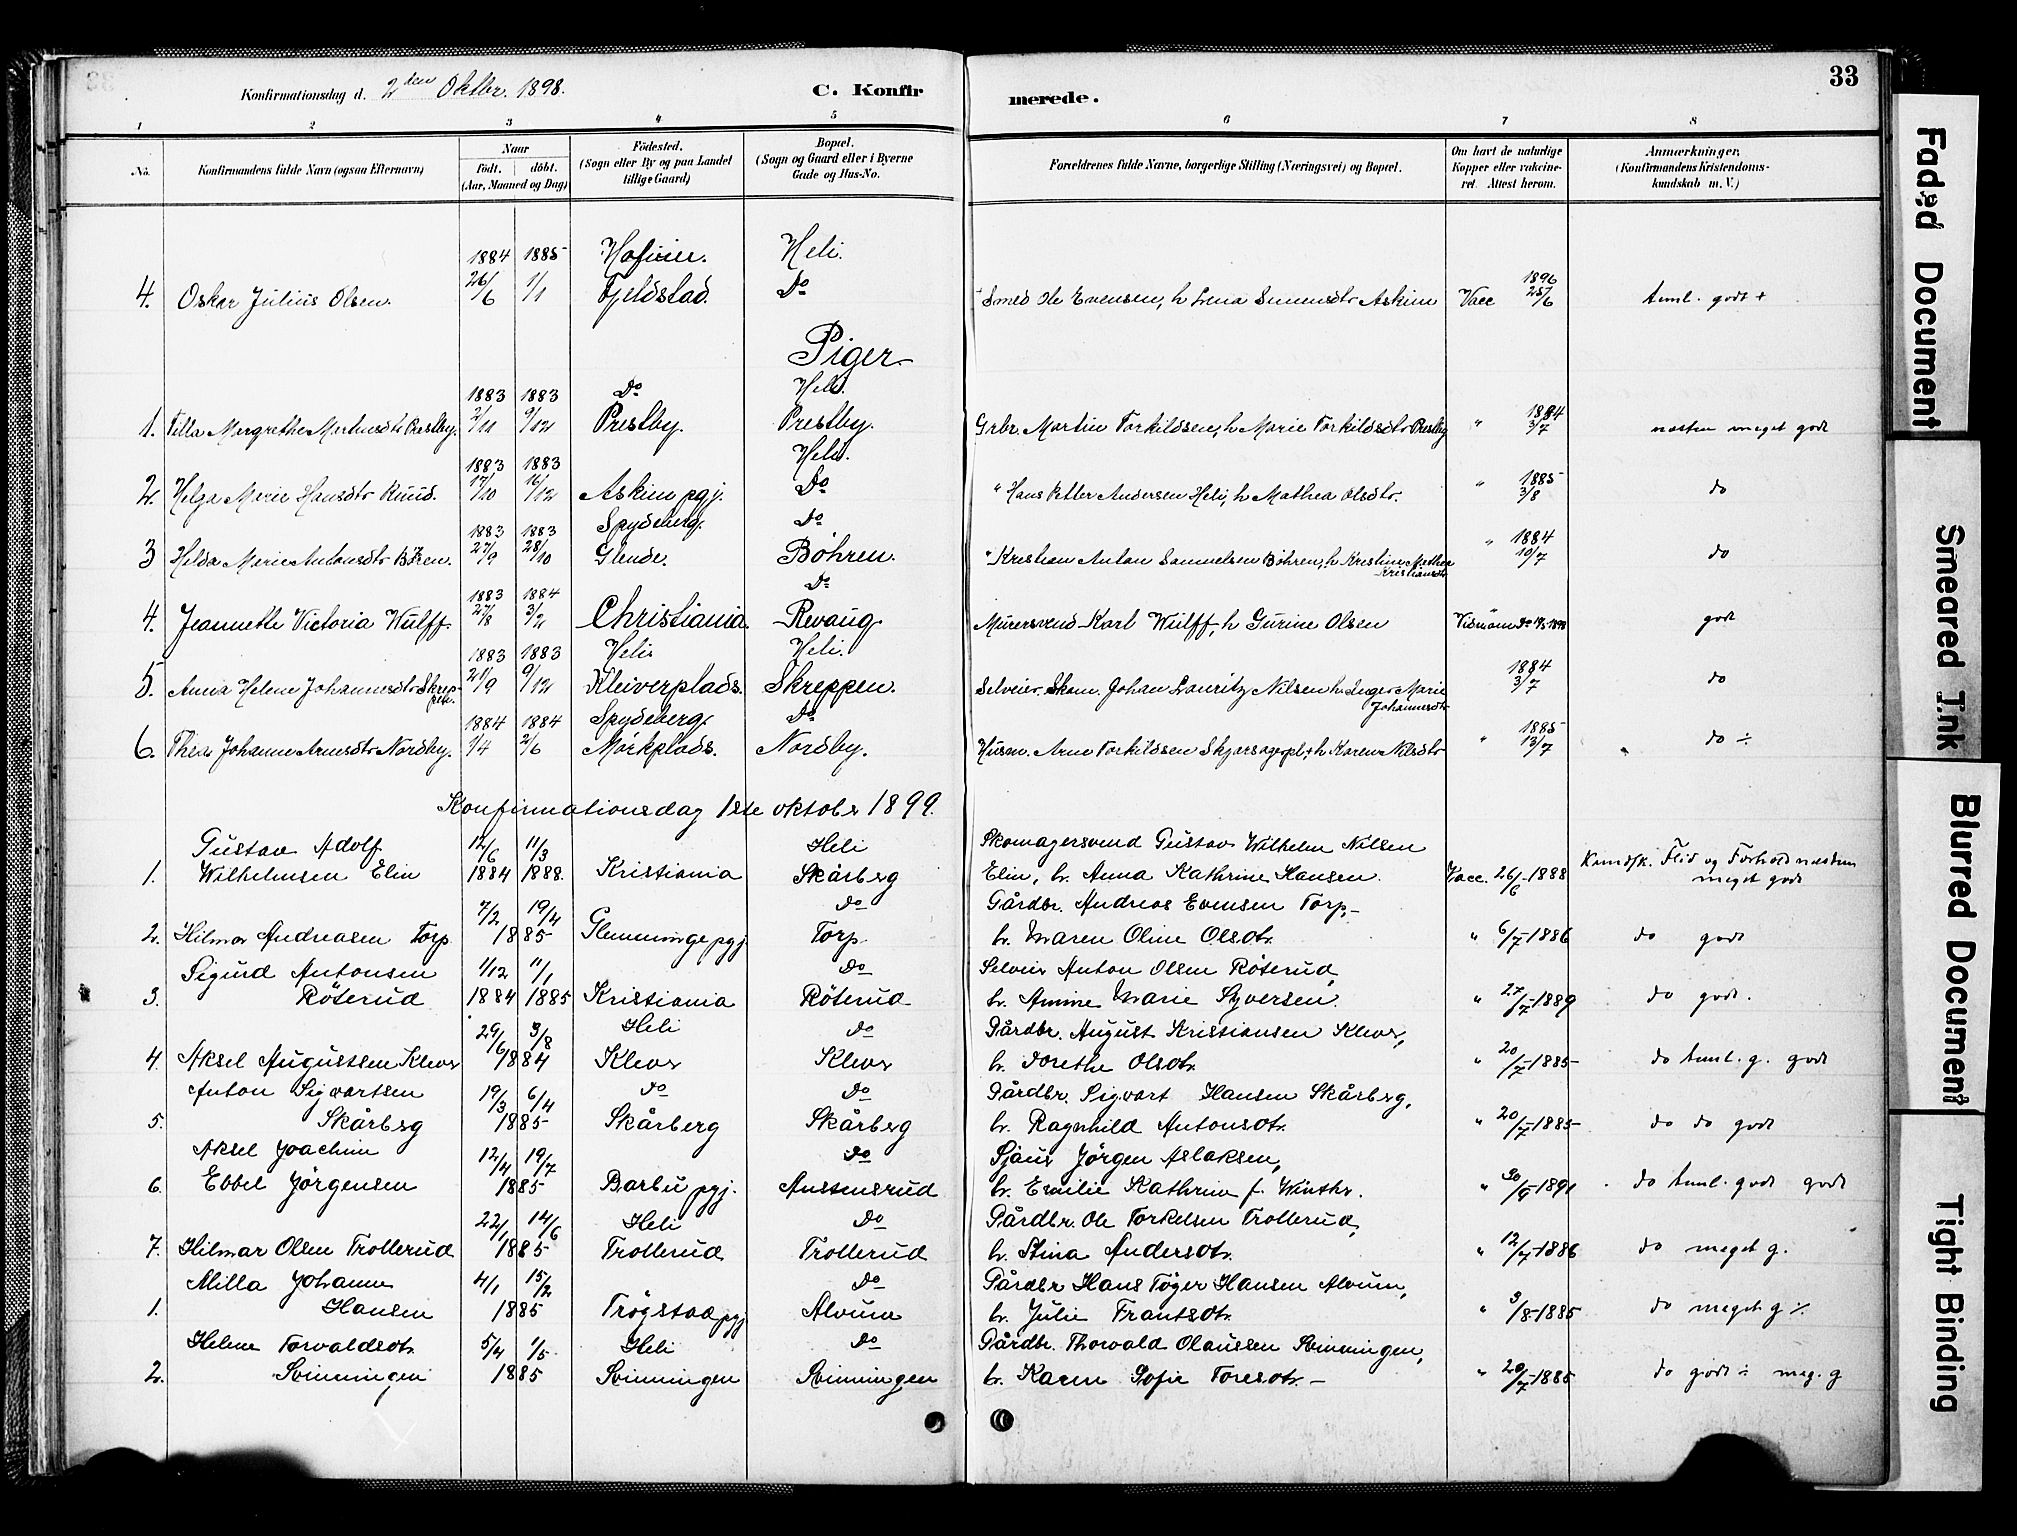 Konfirmationsdag d. 2den Oktbr. 1898. C. Konfirmerede. 33
1 2 3 4 5 6 7 8
No. Konfirmandens fulde Navn (ogsaa Efternavn) Naar født. døbt. (Aar, Maaned og Dag) Fødested. (Sogn eller By og paa Landet tillige Gaard) Bopæl. (Sogn og Gaard eller i Byerne Gade og Hus-No. Forældrenes fulde Navne, borgerlige Stilling (Næringsvei) og Bopæl. Om havt de naturlige Kopper eller vakcineret. Attest herom. Anmærkninger. (Konfirmandens Kristendomskundskab m. V.)
1884 1885 Heli. 1896
4. Oskar Julius Olsen. 26/6 1/1 Fjeldstad. Do Smed Ole Evensen, h Lena Askim Vacc 25/6 taml. godt +
Piger
1883 1883 Do Heli. 1884
1. Margrethe Martinsdtr Prestby. 2/11 9/12 Prestby. Prestby. Grbr. Martin Torkildsen, h Marie Torkildsdtr Prestby " 3/7 næsten meget godt
1883 1883 Heli. 1885
2. Helga Marie Hansdtr Ruud. 17/10 16/12 Askim pgj. Do " Hans Petter Andersen Heli, h Mathea Olsdtr. " 3/8 do
1883 1883 Spydeberg. Do 1884
3 Hilda Marie Antonsdtr Böhren. 27/9 28/10 Glende. Böhren. " Kristian Anton Samuelsen Böhren, h Kristine Mathea Kristiansdtr " 10/7 do
1883 1884 Do
4. Jeannette Victoria Wulff 27/8 3/2 Christiania Revaug Murersvend Karl Wulff, h Gurine Olsen godt
1883 1883 Heli Heli. 1884
5. Anna Helene Johannesdtr Skreppen. 21/9 9/12 Kleiverplads. Skreppen. Selveier Skom. Johan Lauritz Nilsen h. Inger Marie Johannesdtr 3/7 do
1884 1884 Spydeberg. Do 1885
6. Thea Johanne Arnesdtr Nordby. 1/4 2/6 Mörkplads. Nordby. Husm. Arne Torkildsen h Karen Nilsdtr " 13/7 " do ÷
Konfirmationsdag 1ste oktober 1899.
Gustav Adolf 12/6 11/3 Heli Skomagersvend Gustav Wilhelm Nilsen
1. Wilhelmsen Elin 1884 1888. Kristiania Skårberg Elin, h. Anna Kathrine Hansen. Vacc. 26/6 1888 Kundsk. Flid og Forhold næsten meget godt
7/2 19/4 do Gårdbr. Andreas Evensen Torp,
2. Hilmar Andreasen Torp 1885 Glemminge pgj Torp h. Maren Oline Olsdtr. " 6/7-1886 do godt
Sigurd Antonsen 1/12 11/1 do Selveier Anton Olsen Röterud,
3. Röterud 1884 1885 Kristiania Röterud h. Amine Marie Syversen. " 27/7-1889 do godt.
29/6 3/8 Heli do Gårdbr. August Kristiansen Klever,
4. Aksel Augustsen Klever 1884 Klever Klever h. Dorethe Olsdtr. " 20/7-1885 do taml. g. godt
Anton Sigvartsen 19/3 6/4 do do Gårdbr. Sigvart Hansen Skårberg,
5. Skårberg 1885 Skårberg Skårberg h. Ragnhild Antonsdtr. " 20/7-1885 do do godt
Aksel Joachim 12/4 19/7 do Sjauer Jörgen Aslaksen,
6. Ebbel Jörgensen 1885 Barbu pgj. Austensrud h. Emilie Kathrine f. Winther. " 30/9-1891 do taml. godt godt
22/1 14/6 Heli do Gårdbr. Ole Torkelsen Trollerud,
7. Hilmar Olsen Trollerud 1885 Trollerud Trollerud h. Stina Andersdtr. " 12/7-1886 do meget g.
Milla Johanne 4/1 15/2 do Gårdbr Hans Töger Hansen Alvum,
1. Hansen 1885 Trögstad pgj Alvum h. Julie Frantsdtr. " 3/8-1885 do meget g ÷
Helene Torvaldsdtr. 5/4 1/5 Heli do Gårdbr. Thorvald Olaussen Svinningen,
2. Svinningen 1885 Svinningen Svinningen h. Karen Sofie Toresdtr. – " 20/7-1885 do godt ÷ meg. g
Faded Document
Smeared Ink
Blurred Document
Tight Binding